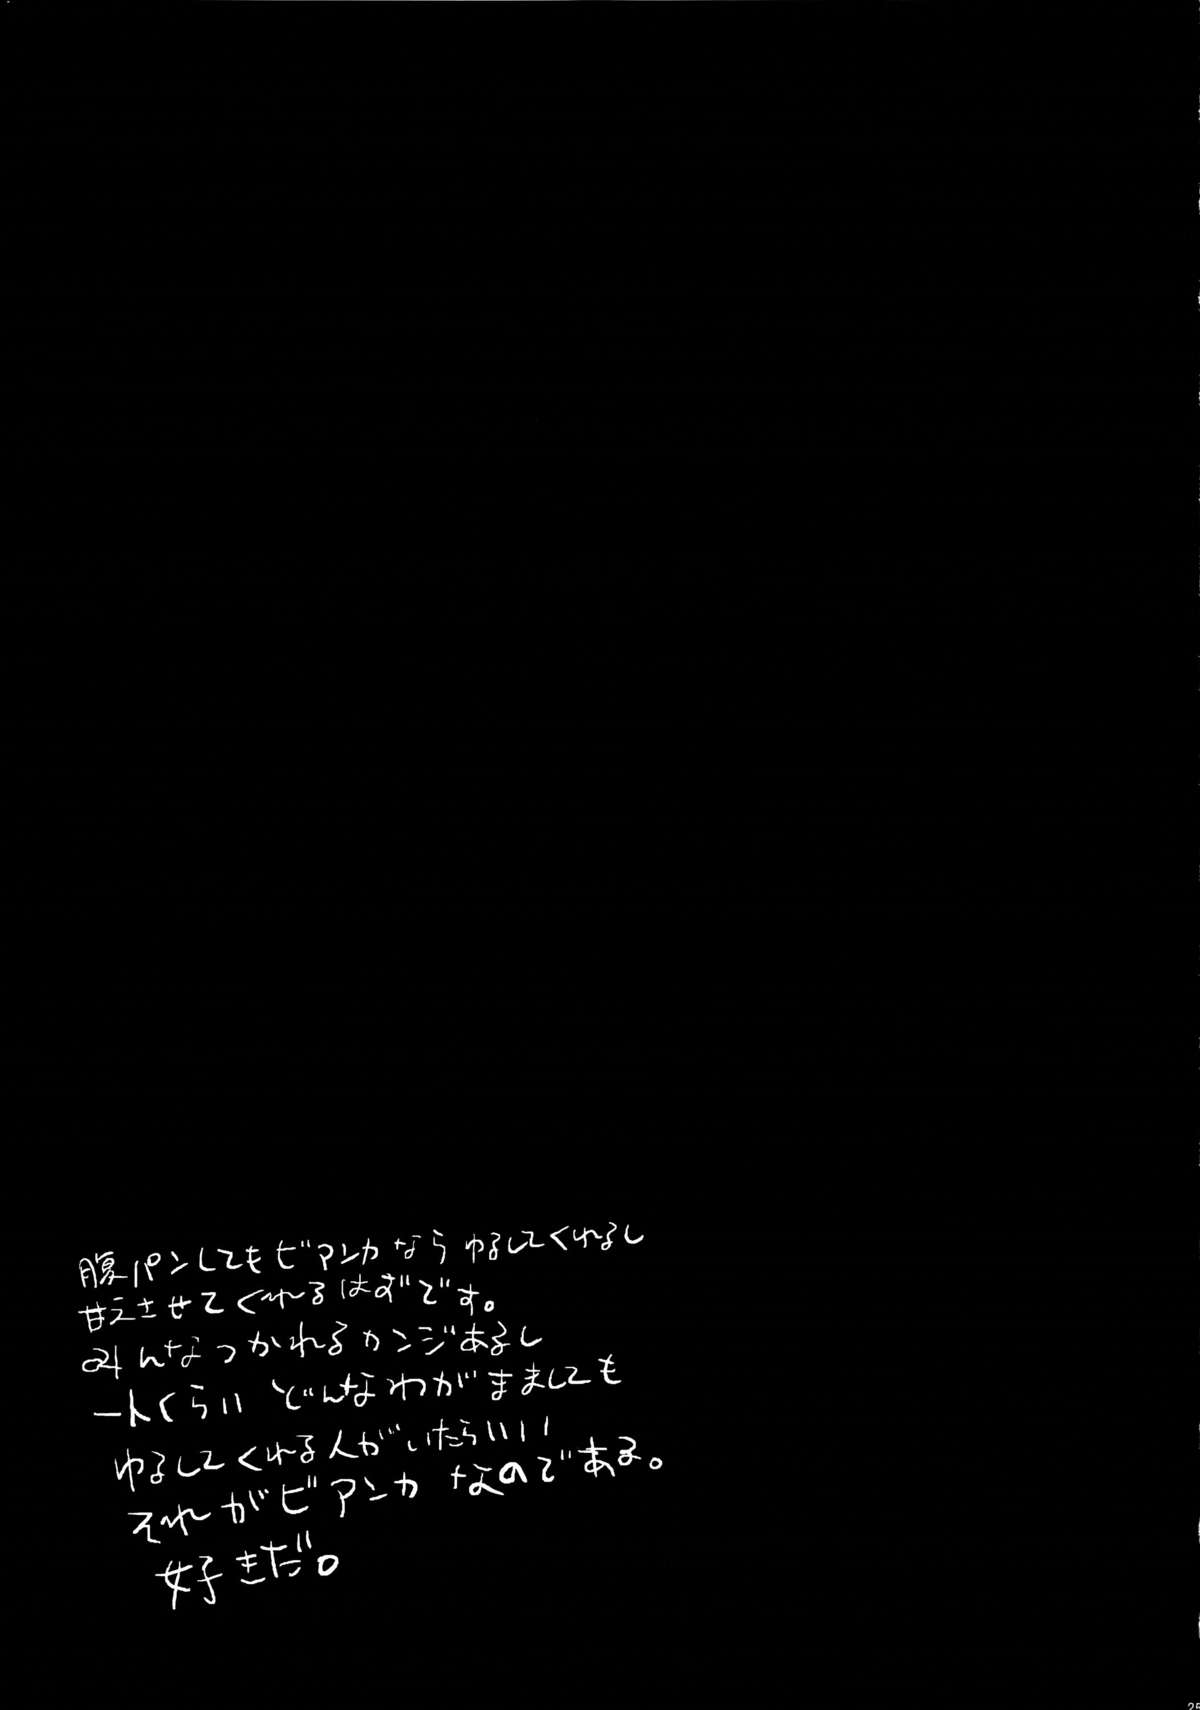 腹パンしてもビアンカなら ゆるしてくれるし
甘えさせてくれるはずです。
みんなつかれるカンジあるし
一人くらい どんなわがまましても
ゆるしてくれる人がいたらいいい
それがビアンカ なのである。
好きだ。
25